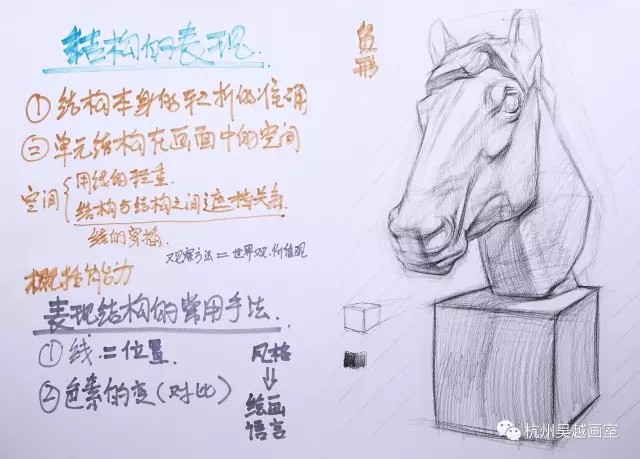 结构的表现.
负形
① 结构本身的转折的准确
② 单元结构在画面中的空间
空间{用线的轻重.
结构与结构之间遮挡关系.
线的穿插.
观察方法 = 世界观.价值观
概括能力
表现结构的常用手法.
① 线 = 位置.
② 色素的变(对比)
风格
⇓
绘画
语言
杭州吴越画室